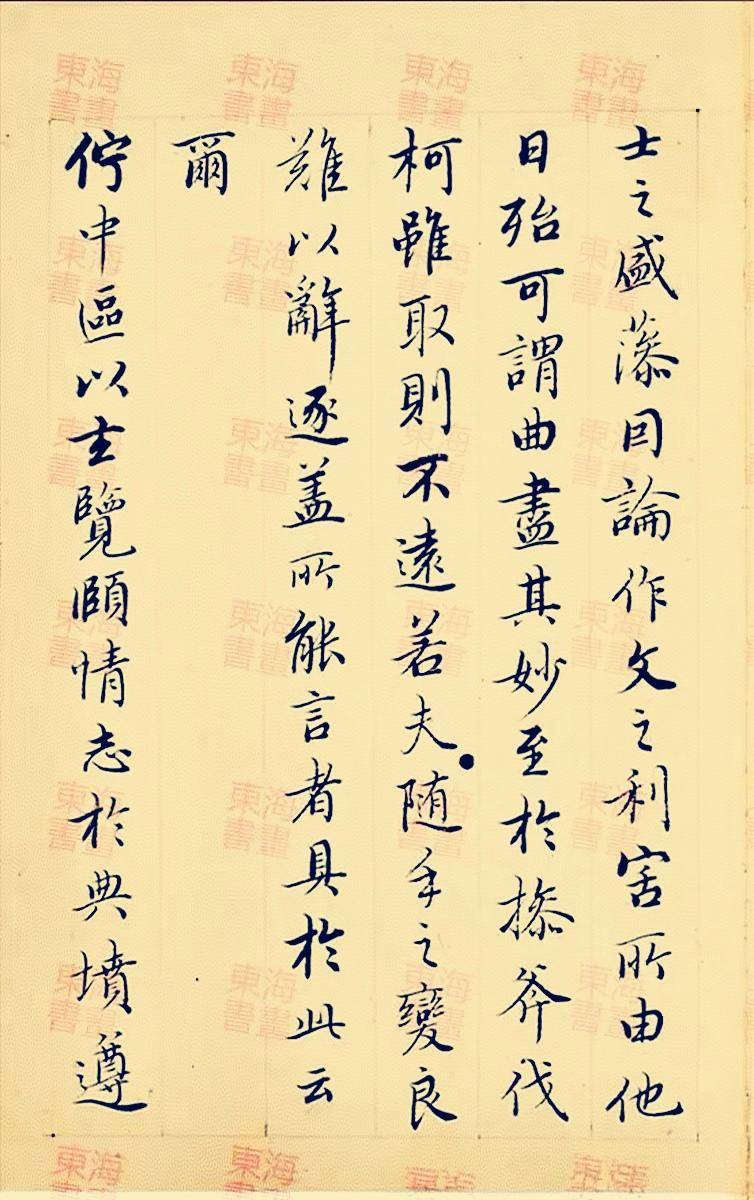 士之盛藻囙論作文之利害所由他
日殆可謂曲盡其妙至於操斧伐
柯雖取則不遠若夫随手之變良
難以辭逐盖所能言者具於此云
爾
佇中區以玄覽頤情志於典墳遵
東海書畫